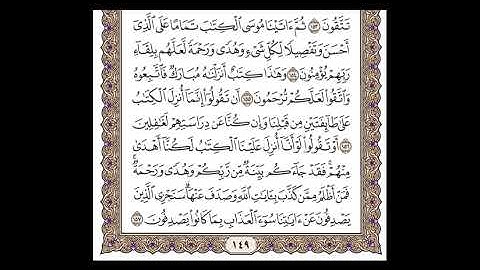 تَتَّقُونَ ١٥٣ ثُمَّ ءَاتَيْنَا مُوسَى ٱلْكِتَٰبَ تَمَامًا عَلَى ٱلَّذِىٓ
أَحْسَنَ وَتَفْصِيلًا لِّكُلِّ شَىْءٍ وَهُدًى وَرَحْمَةً لَّعَلَّهُم بِلِقَآءِ
رَبِّهِمْ يُؤْمِنُونَ ١٥٤ وَهَٰذَا كِتَٰبٌ أَنزَلْنَٰهُ مُبَارَكٌ فَٱتَّبِعُوهُ
وَٱتَّقُوا۟ لَعَلَّكُمْ تُرْحَمُونَ ١٥٥ أَن تَقُولُوٓا۟ إِنَّمَآ أُنزِلَ ٱلْكِتَٰبُ
عَلَىٰ طَآئِفَتَيْنِ مِن قَبْلِنَا وَإِن كُنَّا عَن دِرَاسَتِهِمْ لَغَٰفِلِينَ
١٥٦ أَوْ تَقُولُوا۟ لَوْ أَنَّآ أُنزِلَ عَلَيْنَا ٱلْكِتَٰبُ لَكُنَّآ أَهْدَىٰ
مِنْهُمْ ۚ فَقَدْ جَآءَكُم بَيِّنَةٌ مِّن رَّبِّكُمْ وَهُدًى وَرَحْمَةٌ ۚ
فَمَنْ أَظْلَمُ مِمَّن كَذَّبَ بِـَٔايَٰتِ ٱللَّهِ وَصَدَفَ عَنْهَا ۗ سَنَجْزِى ٱلَّذِينَ
يَصْدِفُونَ عَنْ ءَايَٰتِنَا سُوٓءَ ٱلْعَذَابِ بِمَا كَانُوا۟ يَصْدِفُونَ ١٥٧
١٤٩